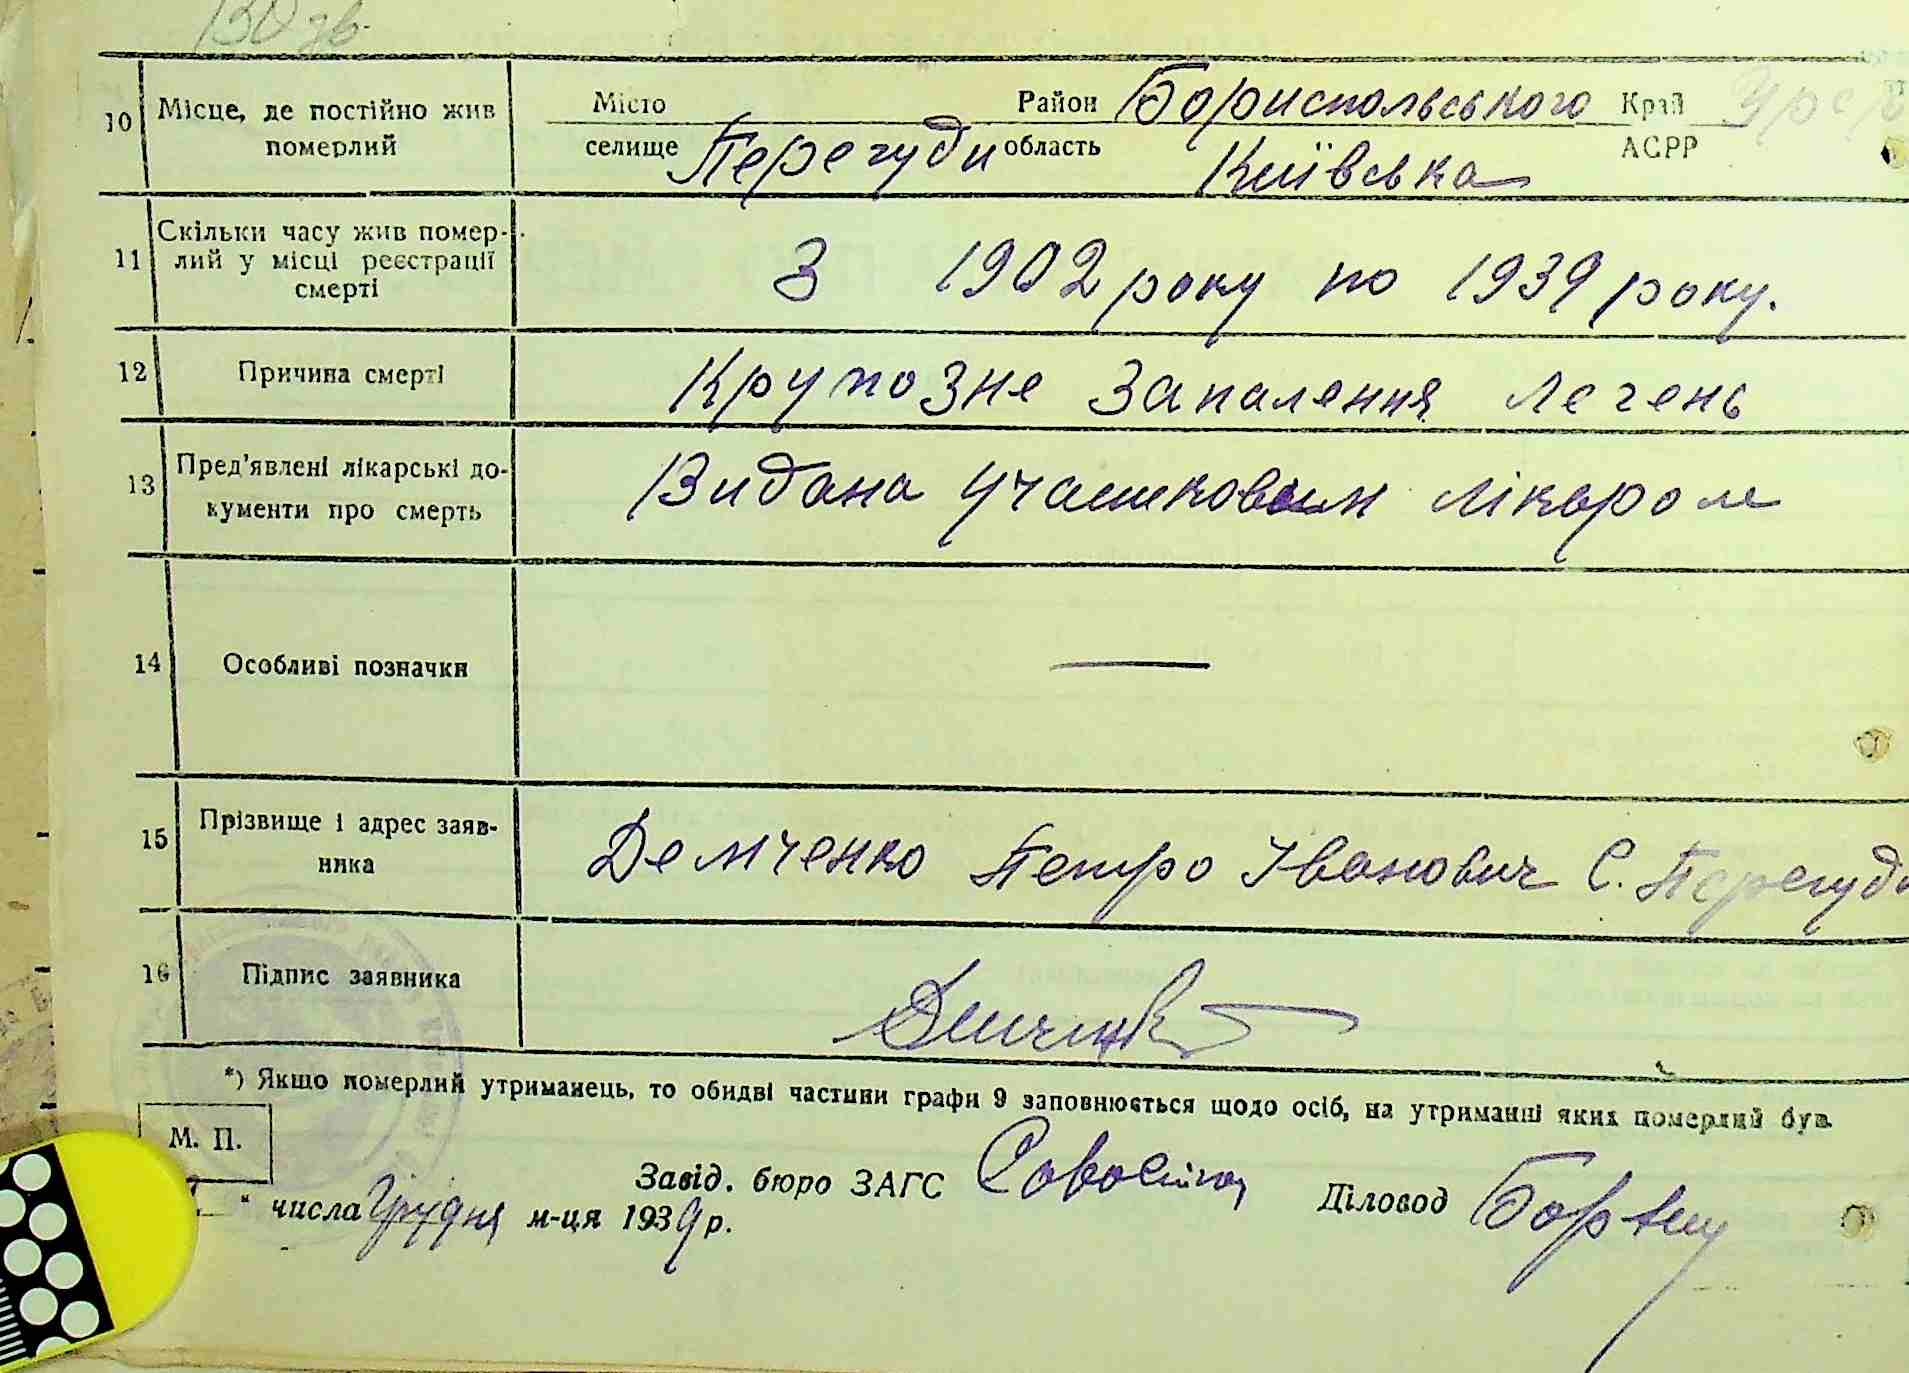 130 зв.
10 Місце, де постійно жив померлий Місто Район Бориспольського Край УРСР
селище Перегуди область Київська АСРР
11 Скільки часу жив помер-
лий у місці реєстрації
смерті
З 1902 року по 1939 року.
12 Причина смерті Крупозне Запалення легень
13 Пред'явлені лікарські до-
кументи про смерть
Видана участковим лікаром
14 Особливі позначки —
15 Прізвище і адрес заяв-
ника
Демченко Петро Іванович С. Перегуди
16 Підпис заявника
*) Якщо померлий утриманець, то обидві частини графи 9 заповнюється щодо осіб, на утриманні яких померлий був.
М. П.
Завід. бюро ЗАГС Діловод
" числа Грудня м-ця 1939 р.